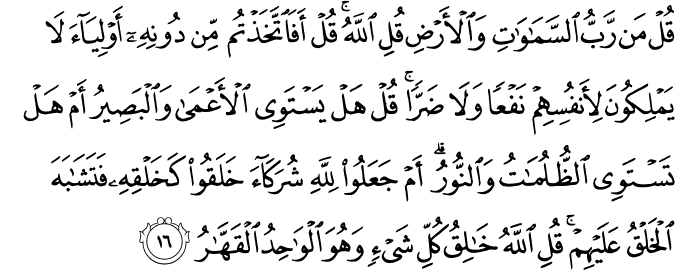 قُلۡ مَن رَّبُّ ٱلسَّمَٰوَٰتِ وَٱلۡأَرۡضِ قُلِ ٱللَّهُۚ قُلۡ أَفَٱتَّخَذۡتُم مِّن دُونِهِۦٓ أَوۡلِيَآءَ لَا
يَمۡلِكُونَ لِأَنفُسِهِمۡ نَفۡعٗا وَلَا ضَرّٗاۚ قُلۡ هَلۡ يَسۡتَوِي ٱلۡأَعۡمَىٰ وَٱلۡبَصِيرُ أَمۡ هَلۡ
تَسۡتَوِي ٱلظُّلُمَٰتُ وَٱلنُّورُۗ أَمۡ جَعَلُواْ لِلَّهِ شُرَكَآءَ خَلَقُواْ كَخَلۡقِهِۦ فَتَشَٰبَهَ
ٱلۡخَلۡقُ عَلَيۡهِمۡۚ قُلِ ٱللَّهُ خَٰلِقُ كُلِّ شَيۡءٖ وَهُوَ ٱلۡوَٰحِدُ ٱلۡقَهَّٰرُ ١٦